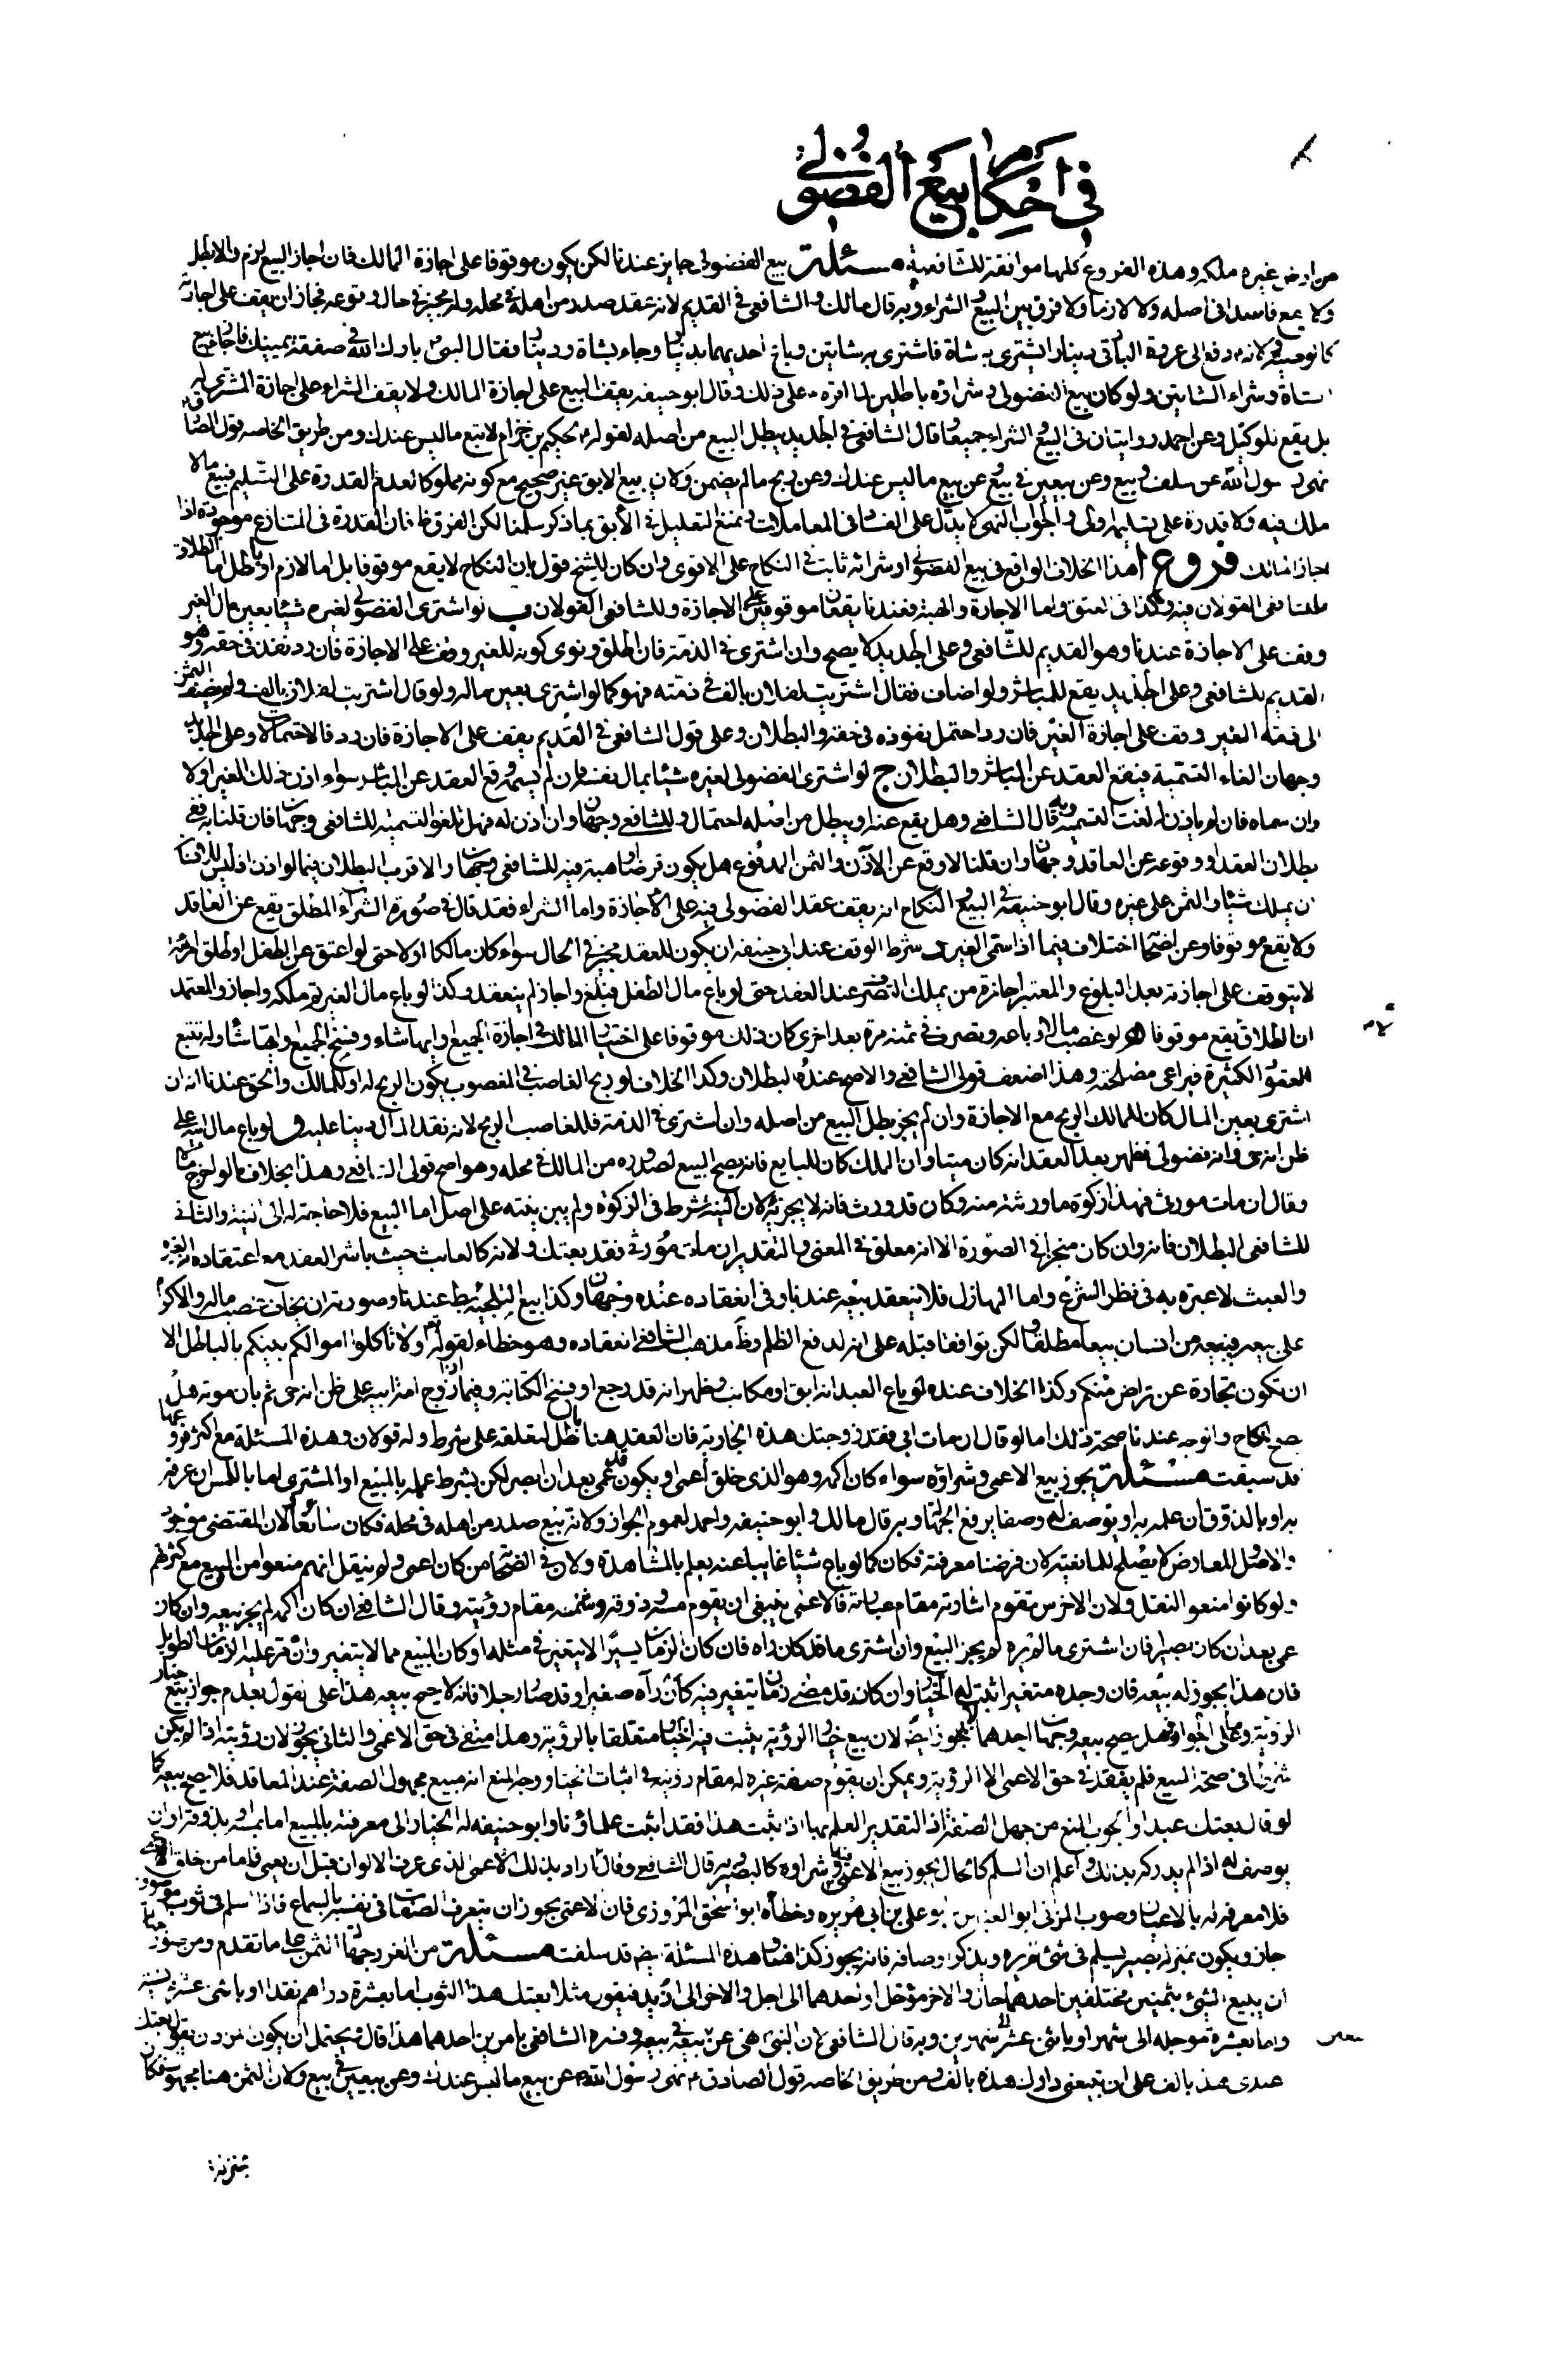 في احكام بيع الفضولي
من ارض غيره ملكه وهذه الفروع كلها موافقة للشافعية مسئلة بيع الفضولي جايز عندنا لكن يكون موقوفا على اجازة المالك فان اجاز البيع لزم والا بطل
ولا يقع فاسدا في اصله ولا لازما ولا فرق بين البيع والشراء وبه قال مالك والشافعي في القديم لانه عقد صدر من اهله في محله وله مجيز في حال وقوعه فجاز ان يقف على اجازته
كالوصية ولانه دفع الى عروة البارقي دينارا ليشتري به شاة فاشترى به شاتين وباع احديهما بدينار وجاء بشاة ودينار فقال النبي بارك الله في صفقة يمينك فاجاز بيع
الشاة وشراء الشاتين ولو كان بيع الفضولي وشراؤه باطلين لما اقره على ذلك وقال ابو حنيفه يقف البيع على اجازة المالك ولا يقف الشراء على اجازة المشتري له
بل يقع للوكيل وعن احمد روايتان في البيع والشراء جميعا وقال الشافعي في الجديد يبطل البيع من اصله لقوله لحكيم بن حزام لا تبع ما ليس عندك ومن طريق الخاصه قول الصادق
نهى رسول الله عن سلف وبيع وعن بيعين في بيع وعن بيع ما ليس عندك وعن ربح ما لم يضمن ولان بيع الآبق غير صحيح مع كونه مملوكا لعدم القدرة على التسليم فبيع ما لا
ملك فيه ولا قدرة على تسليمه اولى والجواب النهي لا يدل على الفساد في المعاملات ونمنع التعليل في الآبق بما ذكر سلمنا لكن الفرق ظ فان القدرة في المتنازع موجودة اذا
اجاز المالك فروع ا هذا الخلاف الواقع في بيع الفضولي او شرائه ثابت في النكاح على الاقوى وان كان للشيخ قول بان النكاح لا يقع موقوفا بل اما لازم او باطل اما الطلاق
فللشافعي القولان فيه وكذا في العتق واما الاجارة والهبة فعندنا يقعان موقوفين على الاجازة وللشافعي القولان ب لو اشترى الفضولي لغيره شيئا بعين مال الغير
وقف على الاجازة عندنا وهو القديم للشافعي وعلى الجديد لا يصح وان اشترى في الذمة فان اطلق ونوى كونه للغير وقف على الاجازة فان رد نفذ في حقه وهو
القديم للشافعي وعلى الجديد يقع للمباشر ولو اضاف فقال اشتريت لفلان بالف في ذمته فهو كما لو اشترى بعين ماله ولو قال اشتريت لفلان بالف ولم يضف الثمن
الى ذمة الغير وقف على اجازة الغير فان رد احتمل نفوذه في حقه والبطلان وعلى قول الشافعي في القديم يقف على الاجازة فان رد فالاحتمالان وعلى الجديد
وجهان الغاء التسمية فيقع العقد عن المباشر والبطلان ج لو اشترى الفضولي لغيره شيئا بمال نفسه فان لم يسمه وقع العقد عن المباشر سواء اذن ذلك الغير او لا
وان سماه فان لم ياذن له لغت التسمية وبه قال الشافعي وهل يقع عنه او يبطل من اصله احتمال وللشافعي وجهان وان اذن له فهل تلغو التسمية للشافعي وجهان فان قلنا به ففي
بطلان العقد او وقوعه عن العاقد وجهان وان قلنا لا وقع عن الآذن والثمن المدفوع هل يكون قرضا او هبة فيه للشافعي وجهان والاقرب البطلان فيما لو اذن اذ ليس للانسان
ان يملك شيئا والثمن على غيره وقال ابو حنيفة في البيع والنكاح انه يقف عقد الفضولي فيه على الاجازة واما الشراء فقد قال في صورة الشراء المطلق يقع عن العاقد
ولا يقع موقوفا وعن اصحابه اختلاف فيما اذا سمى الغير د شرط الوقف عند ابي حنيفه ان يكون للعقد مجيز في الحال سواء كان مالكا او لا حتى لو اعتق عن الطفل او طلق امرأته
لا يتوقف على اجازته بعد البلوغ والمعتبر اجازة من يملك التصرف عند العقد حتى لو باع مال الطفل فبلغ واجاز لم ينعقد وكذا لو باع مال الغير ثم ملكه واجاز والمعتمد
ان الطلاق يقع موقوفا ه لو غصب مالا وباعه وتصرف في ثمنه مرة بعد اخرى كان ذلك موقوفا على اختيار المالك في اجازة الجميع او ايها شاء وفسخ الجميع او ايها شاء وله تتبع
العقود الكثيرة فيراعى مصلحته وهذا اضعف قولي الشافعي والاصح عنده البطلان وكذا الخلاف لو ربح الغاصب في المغصوب يكون الربح له او للمالك والحق عندنا انه ان
اشترى بعين المال كان للمالك الربح مع الاجازة وان لم يجز بطل البيع من اصله وان اشترى في الذمة فللغاصب الربح لانه نقد المال دينا عليه و لو باع مال ابيه على
ظن انه حي وانه فضولي فظهر بعد العقد انه كان ميتا وان الملك كان للبايع فانه يصح البيع لصدوره من المالك في محله وهو اصح قولي الشافعي وهذا بخلاف ما لو اخرج مالا
وقال ان مات مورثي فهذا زكوة ما ورثته منه وكان قد ورث فانه لا يجزئه لان النية شرط في الزكوة ولم يبن نيته على اصل اما البيع فلا حاجة له الى النية والثاني
للشافعي البطلان فانه وان كان منجزا في الصورة الا انه معلق في المعنى والتقدير ان مات مورثي فقد بعتك ولانه كالعابث حيث باشر العقد مع اعتقاده انه لغيره
والعبث لا عبرة به في نظر الشرع واما الهازل فلا ينعقد بيعه عندنا وفي انعقاده عنده وجهان وكذا بيع التلجئة باطل عندنا وصورته ان يخاف غصب ماله والاكراه
على بيعه فيبيعه من انسان بيعا مطلقا ولكن توافقا قبله على انه لدفع الظلم وظ مذهب الشافعي انعقاده وهو خطاء لقوله تع ولا تاكلوا اموالكم بينكم بالباطل الا
ان تكون تجارة عن تراض منكم وكذا الخلاف عنده لو باع العبد انه ابق او مكاتب وظهر انه قد رجع او فسخ الكتابة وفيما اذا زوج امة ابيه على ظن انه حي ثم بان موته هل
يصح النكاح والوجه عندنا صحة ذلك اما لو قال ان مات ابي فقد زوجتك هذه الجارية فان العقد هنا باطل لتعلقه على شرط وله قولان وهذه المسئلة مع اكثر فروعها
قد سبقت مسئلة يجوز بيع الاعمى وشراؤه سواء كان اكمه وهو الذي خلق اعمى او يكون قد عمي بعد ان ابصر لكن بشرط علمه بالمبيع او المشتري اما باللمس ان عرفه
به او بالذوق ان علمه به او يوصف له وصفا يرفع الجهالة وبه قال مالك وابو حنيفه واحمد لعموم الجواز ولانه بيع صدر من اهله في محله فكان سائغا لان المقتضي موجود
والاصل المعارض لا يصلح للمانعية لان فرضنا معرفته فكان كما لو باع شيئا غايبا عنه يعلم بالمشاهدة ولان في الصحابة من كان اعمى ولم ينقل انهم منعوا من البيع مع كثرتهم
ولو كانوا منعوا لنقل ولان الاخرس تقوم اشارته مقام عبارته فالاعمى ينبغي ان يقوم لمسه وذوقه وشمه مقام رؤيته وقال الشافعي ان كان اكمه لم يجز بيعه وان كان
عمي بعد ان كان بصيرا فان اشترى ما لم يره لم يجز البيع وان اشترى ما قد كان راه فان كان الزمان يسيرا لا يتغير في مثله او كان المبيع مما لا يتغير وان مر عليه الزمان الطويل
فان هذا يجوز له بيعه فان وجده متغيرا اثبت له الخيار وان كان قد مضى زمان يتغير فيه كأن رآه صغيرا وقد صار رجلا فانه لا يصح بيعه هذا على القول بعدم جواز بيع خيار
الرؤية وعلى الجواز فهل يصح بيعه وجهان احدهما لا يجوز ايضا لان بيع خيار الرؤية يثبت فيه الخيار متعلقا بالرؤية وهذا منتفي في حق الاعمى والثاني يجوز لان رؤيته اذا لم يكن
شرطا في صحة البيع فلم يفقد في حق الاعمى الا الرؤية ويمكن ان يقوم صفة غيره له مقام رؤيته في اثبات الخيار ووجه المنع انه مبيع مجهول الصفة عند العاقد فلا يصح بيعه كما
لو قال بعتك عبدا والجواب المنع من جهل الصفة اذ التقدير العلم بها اذا ثبت هذا فقد اثبت علماؤنا وابو حنيفه له الخيار الى معرفته بالمبيع اما بمسه او بذوقه او ان
يوصف له اذا لم يدركه بذلك واعلم ان السلم كالحال يجوز بيع الاعمى فيه وشراؤه كالبصير وبه قال الشافعي وقال اراد بذلك الاعمى الذي عرف الالوان قبل ان يعمى فاما من خلق اعمى
فلا معرفة له بالاعيان وصوب المزني ابو العباس وابو علي بن ابي هريره وخطأه ابو اسحق المروزي فان الاعمى يجوز ان يتعرف الصفات في نفسه بالسماع فاذا اسلم في ثوب موصوف
جاز ويكون بمنزلة بصير يسلم في شئ لم يره ويذكر اوصافه فانه يجوز كذا هنا وهذه المسئلة ايضا قد سلفت مسئلة من الغرر جهالة الثمن على ما تقدم ومن صوره
ان يبيع الشئ بثمنين مختلفين احدهما حال والاخر مؤجل او احدهما الى اجل والاخر الى ازيد فيقول مثلا بعتك هذا الثوب اما بعشرة دراهم نقدا او باثنى عشر نسيئة
واما بعشرة مؤجله الى شهر او باثنى عشر الى شهرين وبه قال الشافعي لان النبي نهى عن بيعة في بيعه وفسره الشافعي بامرين احدهما هذا قال ويحتمل ان يكون المراد ان يقول بعتك
عبدي هذا بالف على ان تبيعني دارك هذه بالف ومن طريق الخاصه قول الصادق نهى رسول الله عن بيع ما ليس عندك وعن بيعين في بيع ولان الثمن هنا مجهول فكان